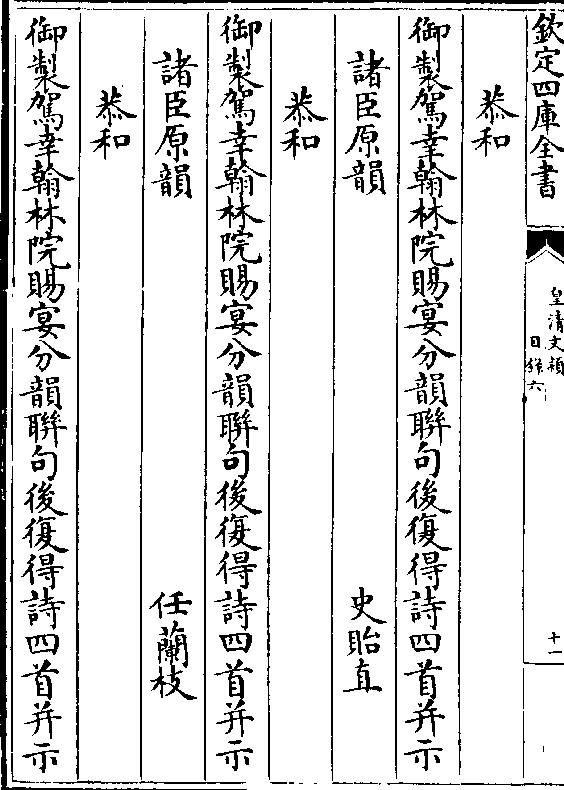 欽定四庫全書
皇清文穎
目錄六
十一
恭和
御製駕幸翰林院賜宴分韻聯句後復得詩四首并示
諸臣原韻
史貽直
恭和
御製駕幸翰林院賜宴分韻聯句後復得詩四首并示
諸臣原韻
任蘭枝
恭和
御製駕幸翰林院賜宴分韻聯句後復得詩四首并示